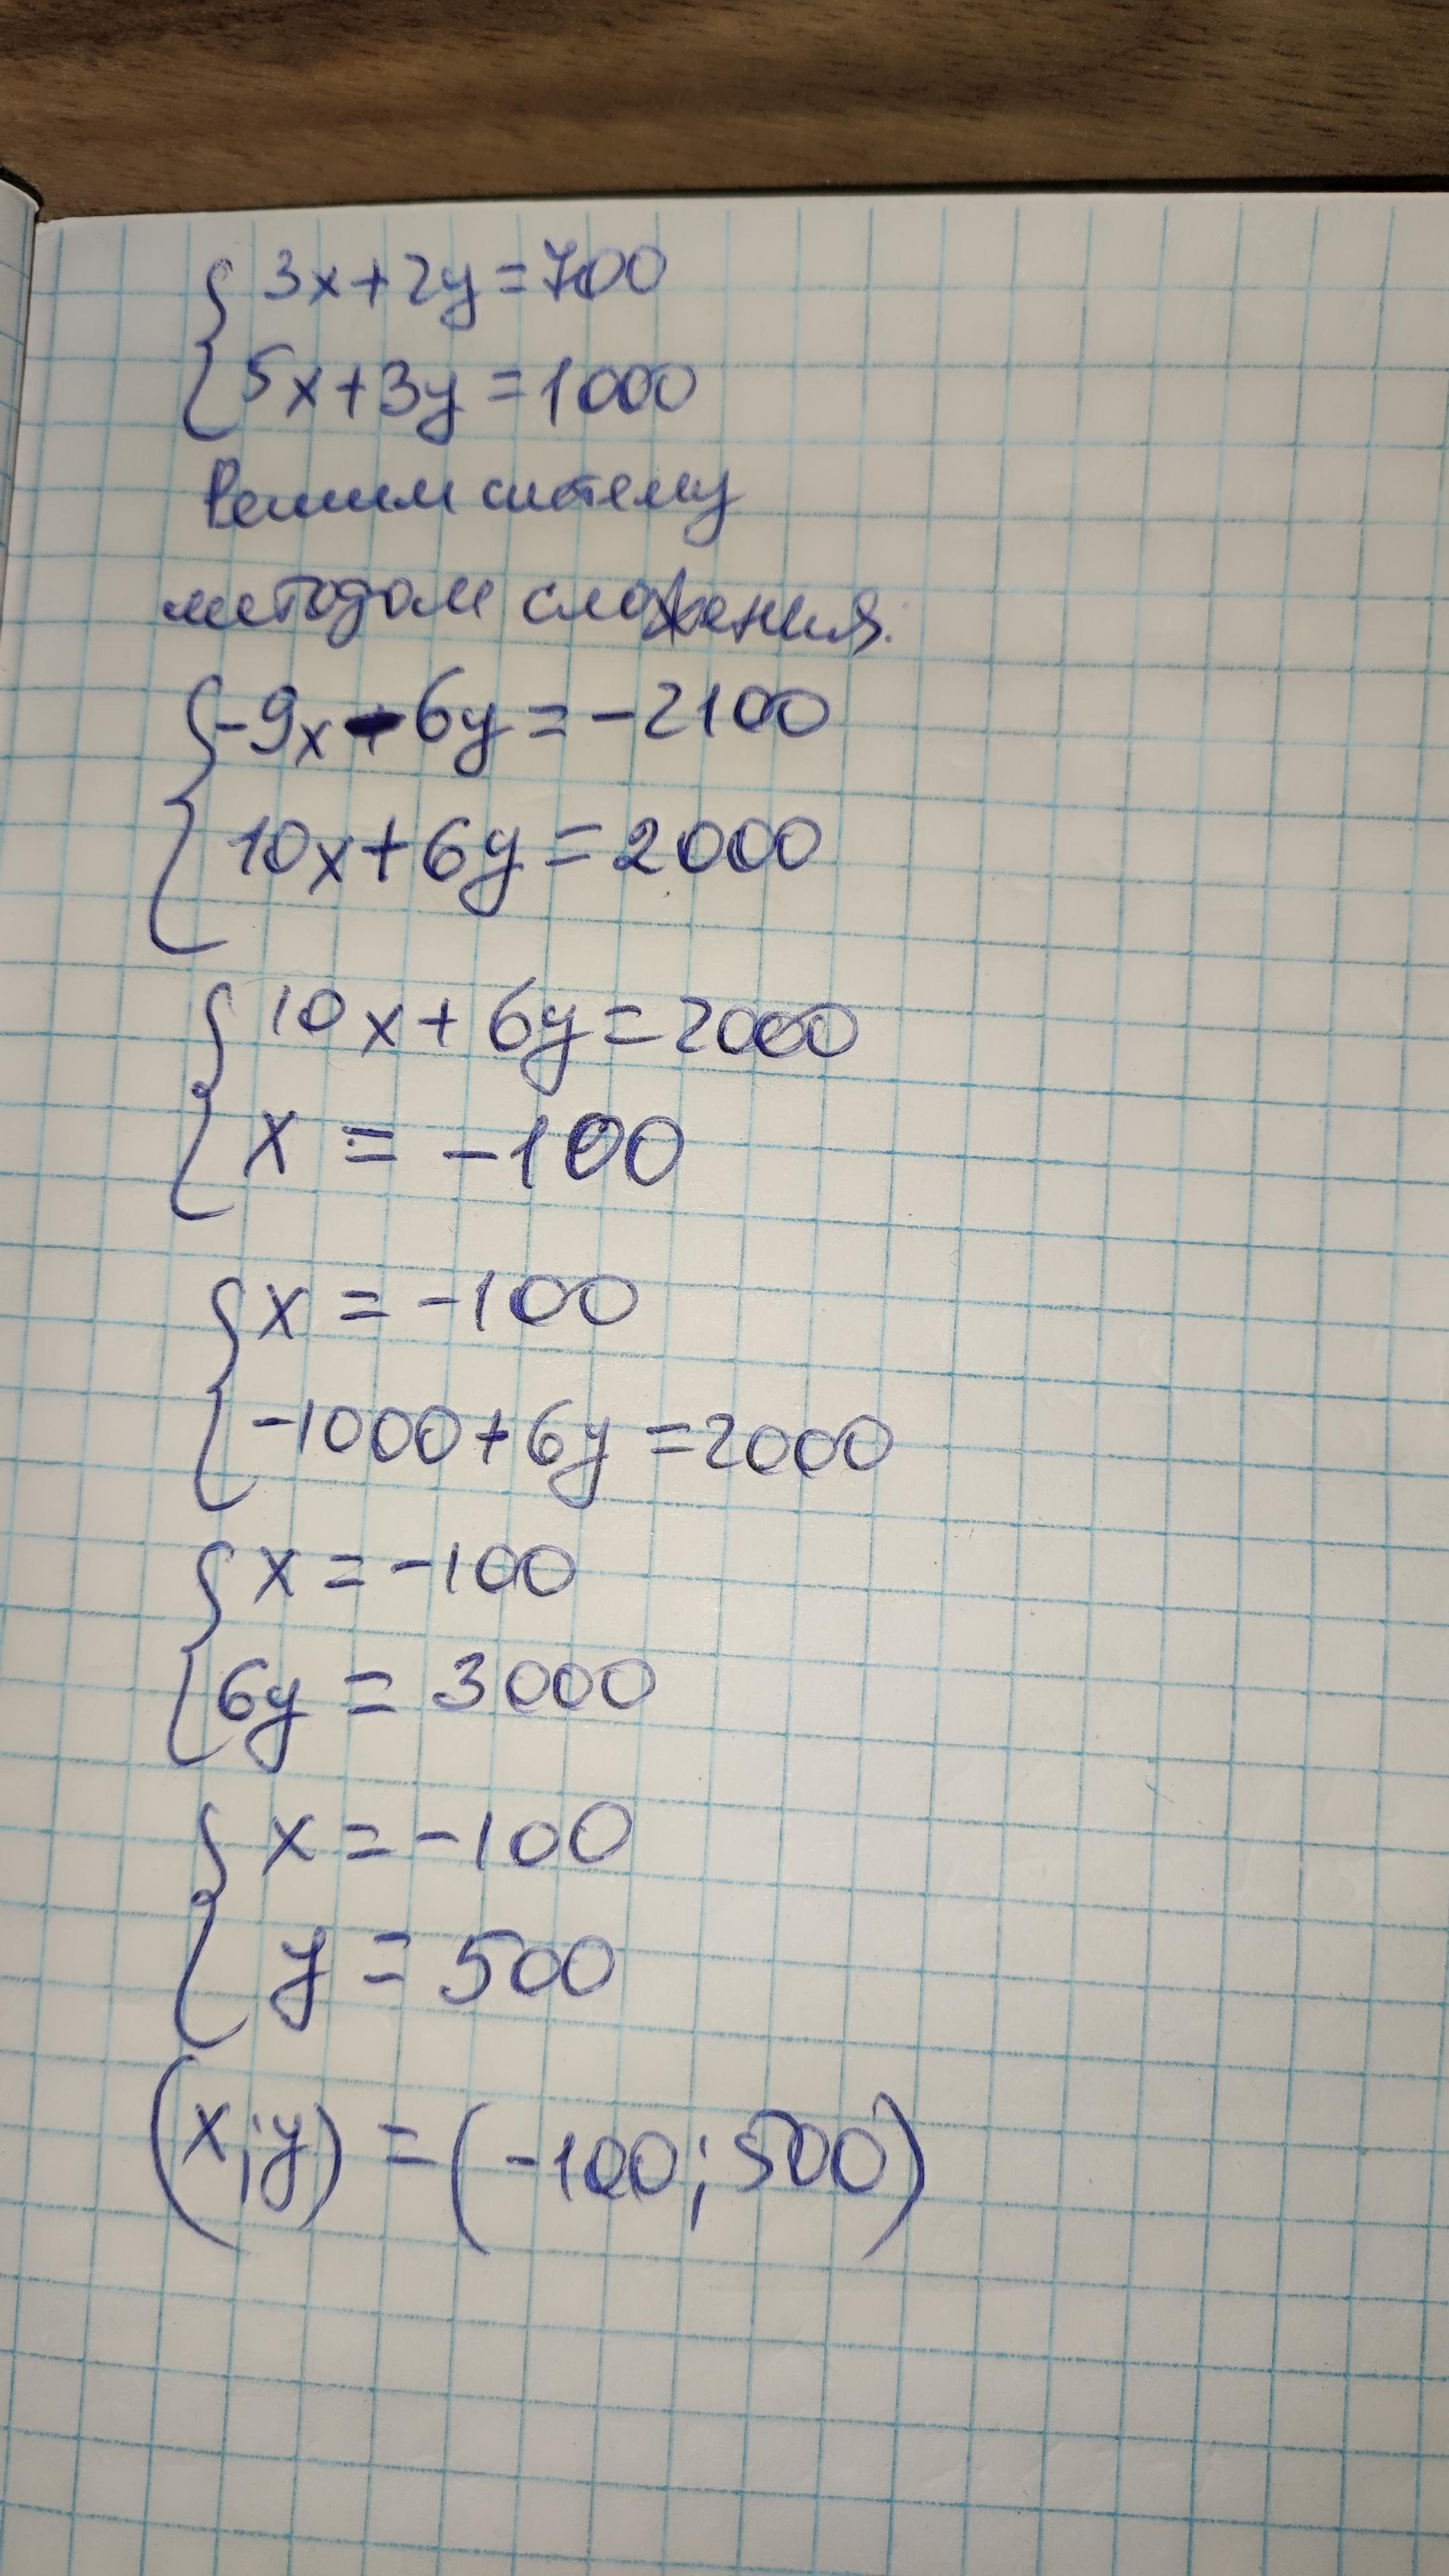 3x+2y=700
5x+3y=1000
Решим систему
методом сложения:
-9x-6y=-2100
10x+6y=2000
10x+6y=2000
x=-100
x=-100
-1000+6y=2000
x=-100
6y=3000
x=-100
y=500
(x;y)=(-100;500)